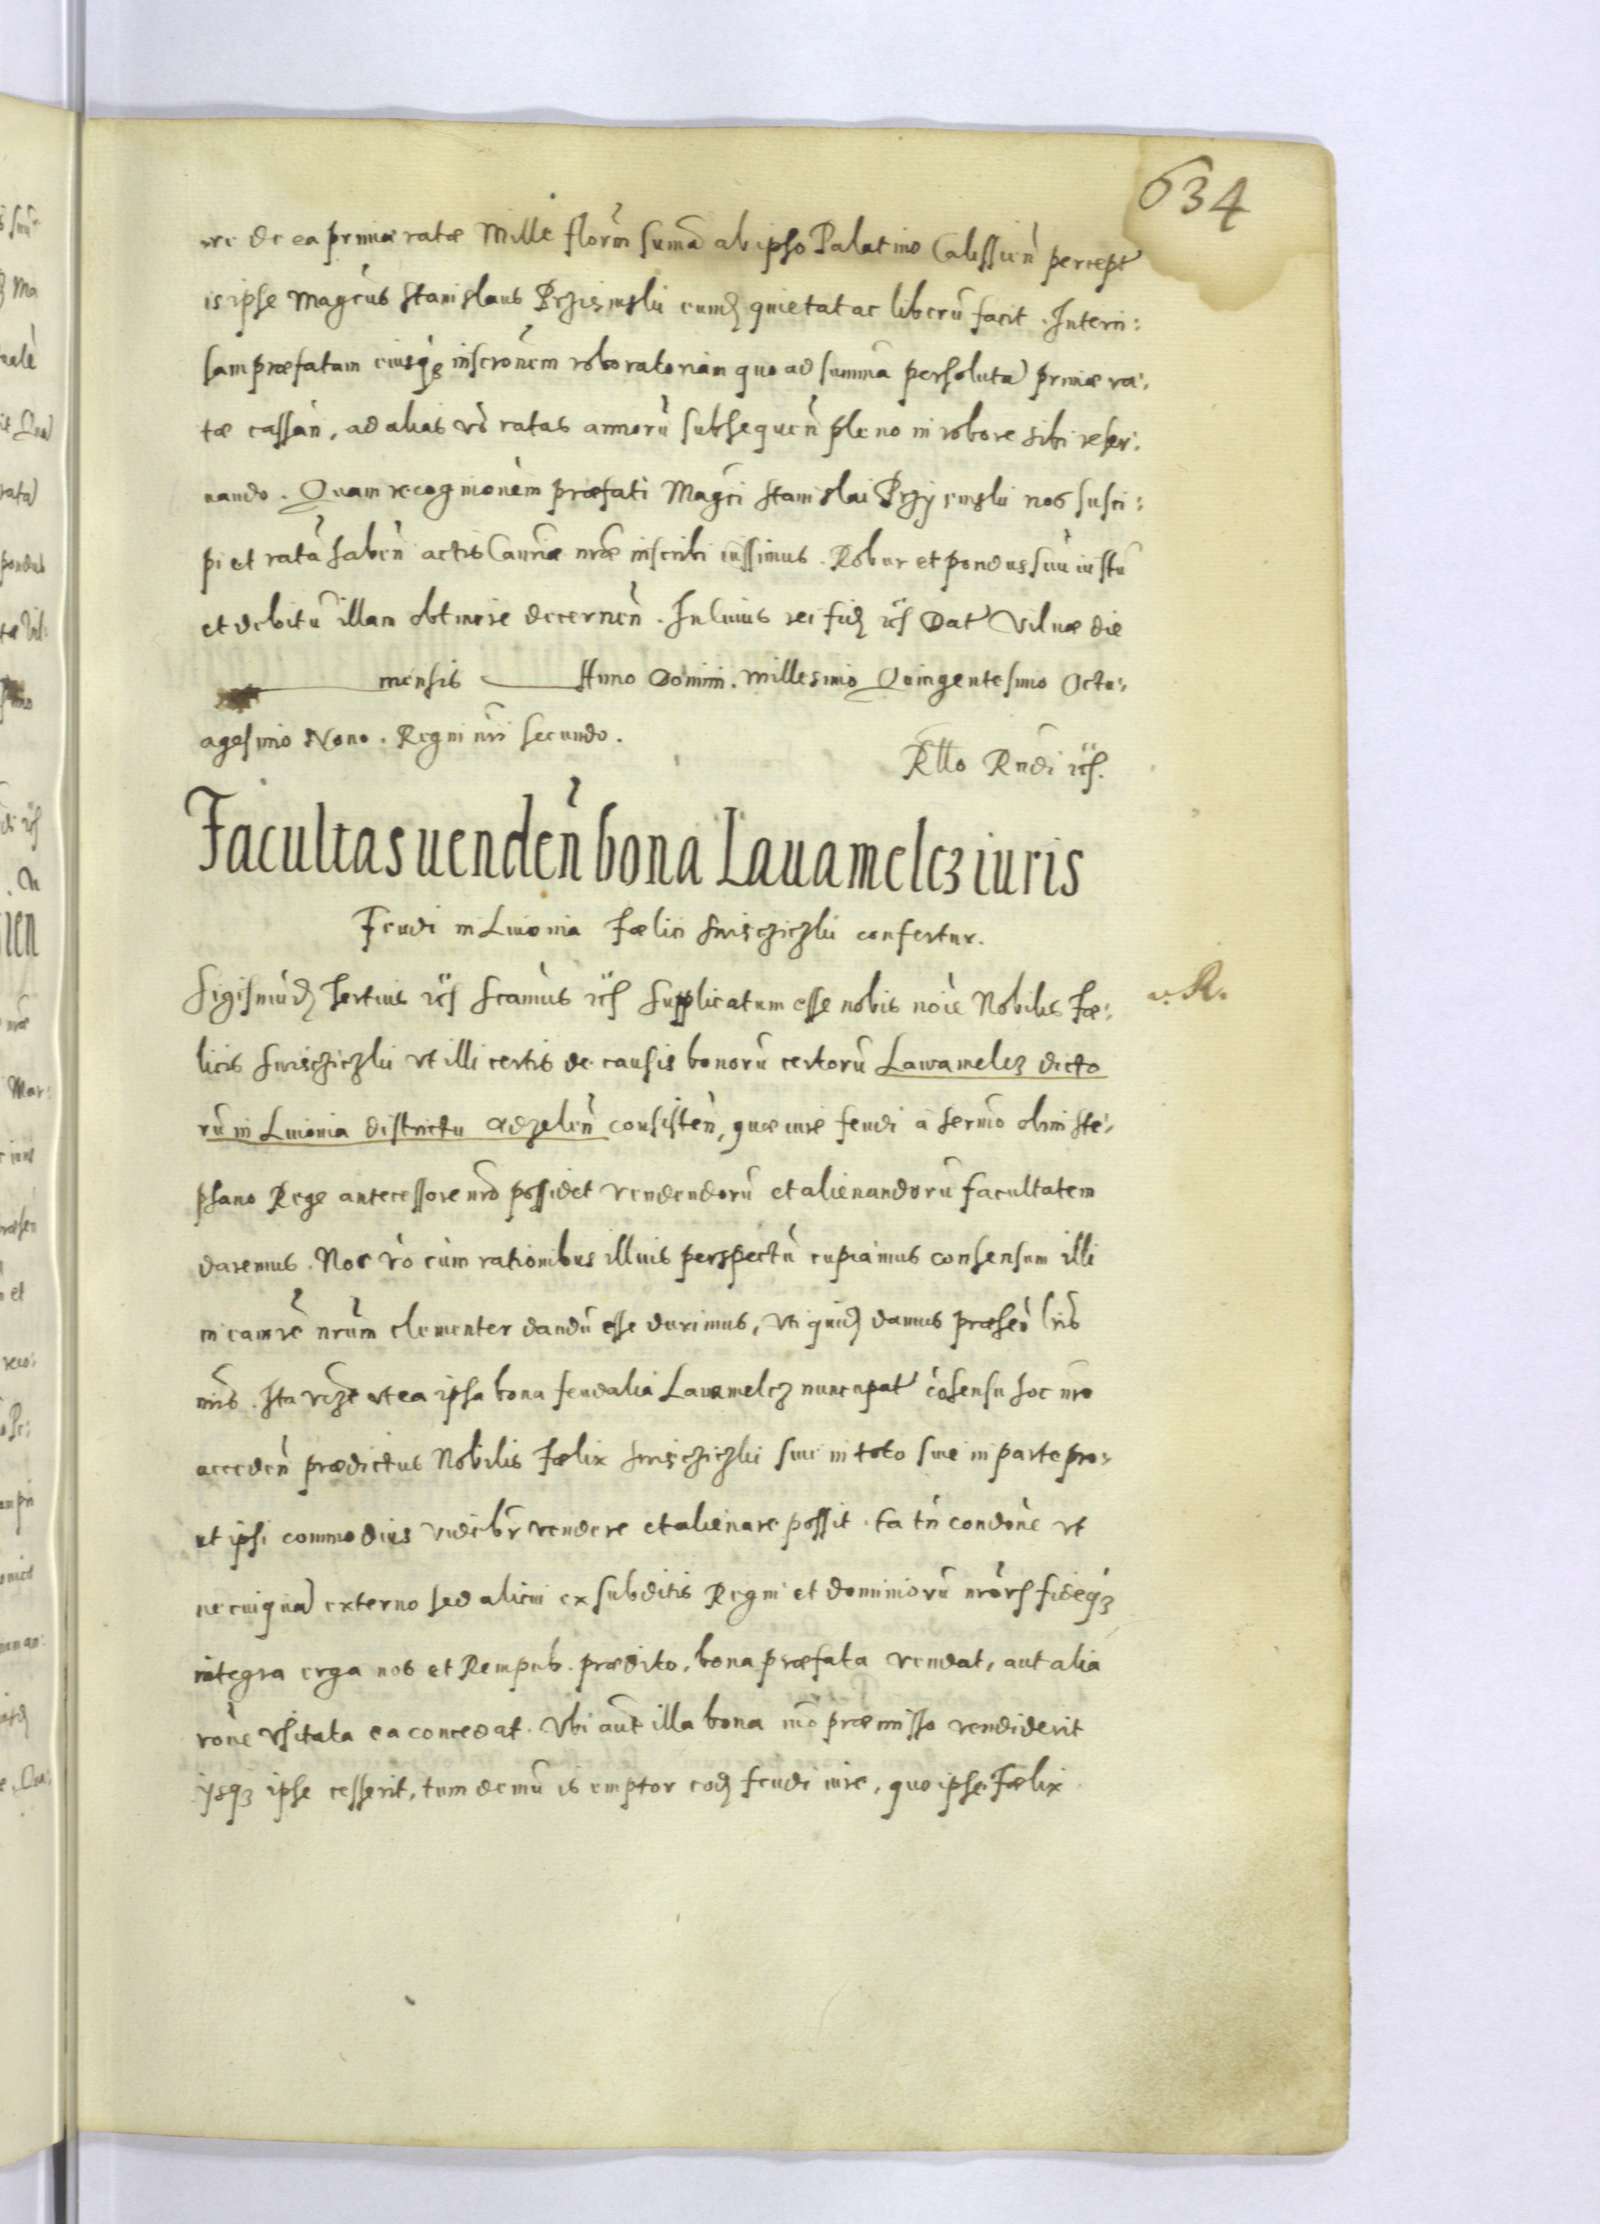 634
re de ea primae ratae Mille florm̃ sum̃a ab ipso Palatino Calissien̄ percept̃
is ipse Magc̃us Stanislaus eund̃ quietat ac liberũ facit. Interci:
sam praefatam eiusq̃ inscrõnem roboratoriam quo ad summã persolutã primae ra:
tae cassan̄, ad alias võ ratas annorũ subsequen̄ pleno in robore sibi reser:
uando. Quam recognicõnem praefati Magc̃i Stanislai nos susci:
pi et ratã haben̄ actis Canc̃riae nr̃ae inscribi iussimus. Robur et pondus suũ iustũ
et debitũ illam obtinere decernen̄. In cuius rei fid̃ etc̃ Dat̃ Vilnae die
mensis Anno Domini. Millesimo Quingentesimo Octu:
agesimo Nono. Regni nr̃i secundo.
Rllo Rndi etc̃.
Facultas uenden̄ bona Lauamelcz iuris
Feudi in Liuonia Foelici confertur.
Sigismũd̃ Tertius etc̃ Scamus etc̃ Supplicatum esse nobis noiẽ Nobilis Foe:
v. R.
licis ut illi certis de causis bonorũ certorũ Lawamelcz dicto
rũ in Liuonia districtu Adzelen̄ consisten̄, quae iure feudi a Sermõ olim Ste:
phano Rege antecessore nr̃o possidet vendendorũ et alienandorũ facultatem
daremus. Nos võ cum rationibus illius perspectũ cupiamus consensum illi
in eam rẽ nr̃um clementer dandũ esse duximus, Vti quid̃ damus praesen̄ lr̃is
nr̃is. Ita vcz̃t ut ea ipsa bona feudalia Lauamelcz nuncupat̃ cõsensu hoc nr̃o
acceden̄ praedictus Nobilis Foelix siue in toto siue in parte pro:
ut ipsi commodius videbr̃ vendere et alienare possit. Ea tñ condõne ut
ne cuiquã externo sed alicui ex subditis Regni et dominiorũ nr̃ors fideq3
integra erga nos et Rempub. praedito, bona praefata vendat, aut alia
rõne vsitata ea concedat. Vbi aut̃ illa bona mõ praemisso vendiderit
ijsq3 ipse cesserit, tum demũ is emptor eod̃ feudi iure, quo ipse Foelix